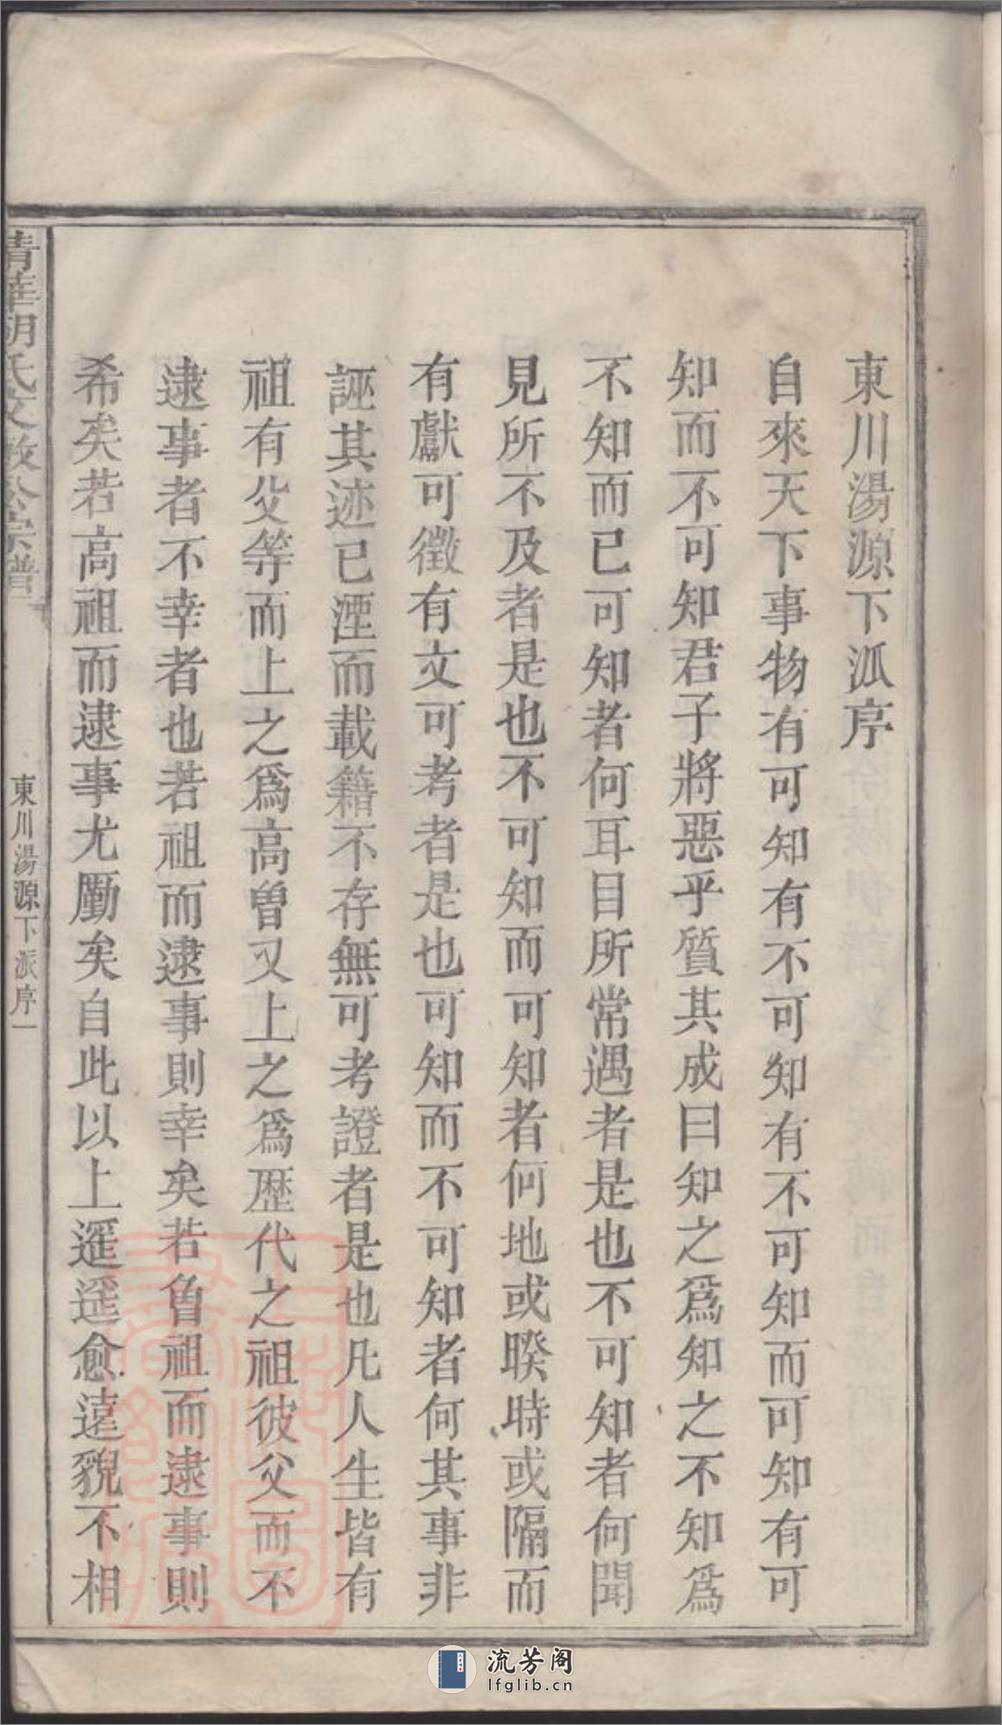 東川湯源下派序
自來天下事物有可知有不可知有不可知而可知有可
知而不可知君子將惡乎質其成曰知之爲知之不知爲
不知而已可知者何耳目所常遇者是也不可知者何聞
見所不及者是也不可知而可知者何地或暌時或隔而
有獻可徵有文可考者是也可知而不可知者何其事非
誣其迹已湮而載籍不存無可考證者是也凡人生皆有
祖有父等而上之爲高曽又上之爲歷代之祖彼父而不
逮事者不幸者也若祖而逮事則幸矣若曾祖而逮事則
希矣若高祖而逮事尤尠矣自此以上遥遥愈遠貌不相
清華胡氏文敏公宗譜
東川湯源下派序一
流芳阁
lfglib.cn